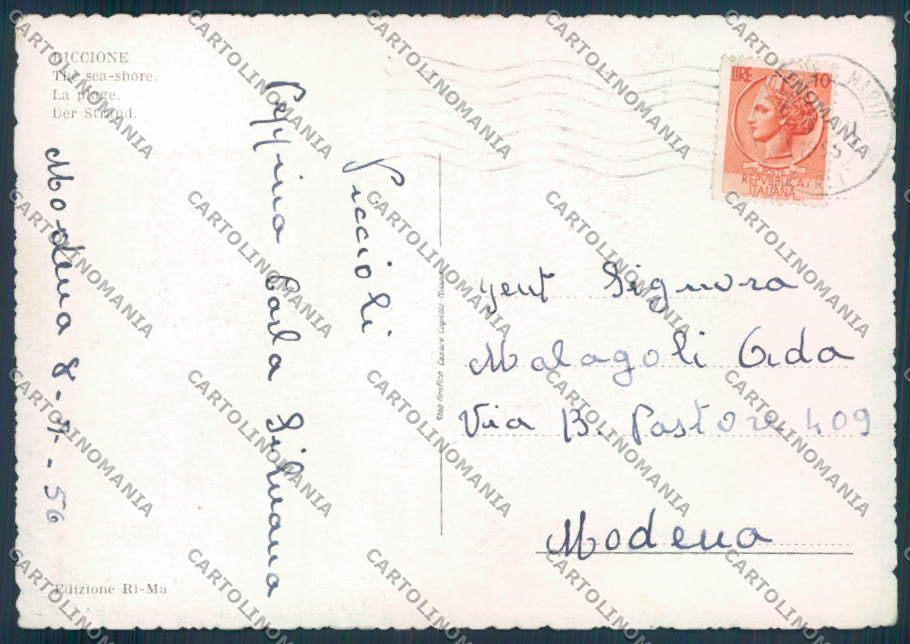 RICCIONE
The sea-shore.
La plage.
Der Strand.
Modena 8-9-56
Peppina Carla Silvana
Piccioli
Edizione Ri-Ma
Cesare Capello Milano
LIRE 10
POSTE
REPVBBLICA
ITALIANA
gent Signora
Malagoli Ada
Via B. Pastore 409
Modena
CARTOLINOMANIA